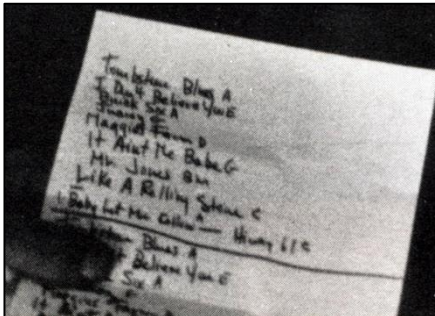 Tombstone Blues A
I Don't Believe You E
Quick Six A
Juanas E
Maggies Farm D
It Aint Me Babe G
Mr. Jones Bm
Like A Rolling Stone C
1. Baby Let Me Follow A — Hiway 61 C
Blues A
Believe You E
Six A
Maggies
It Aint